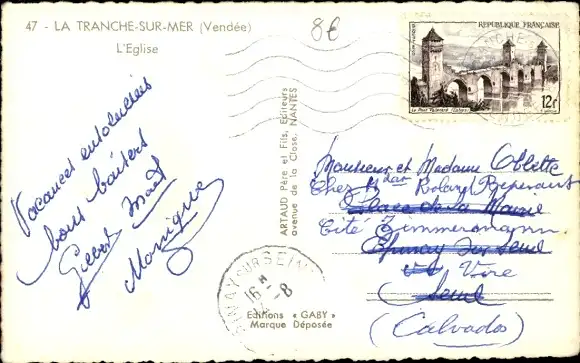 47 - LA TRANCHE-SUR-MER (Vendée)
L'Eglise
8€
REPUBLIQUE FRANÇAISE
Le Pont Valentré (Cahors)
12f
Vacances ensoleillées
bons baisers
Gilbert Maël
Monique
ARTAUD Père et Fils, Editeurs
avenue de la Close, NANTES
Monsieur et Madame Oblette
Chez Mdame Roland
Place de la Mairie
Cité Zimmermann
Epinay sur Seine
Vire
Seine
(Calvados)
EPINAY SUR SEINE
16 H
-8
Editions « GABY »
Marque Déposée